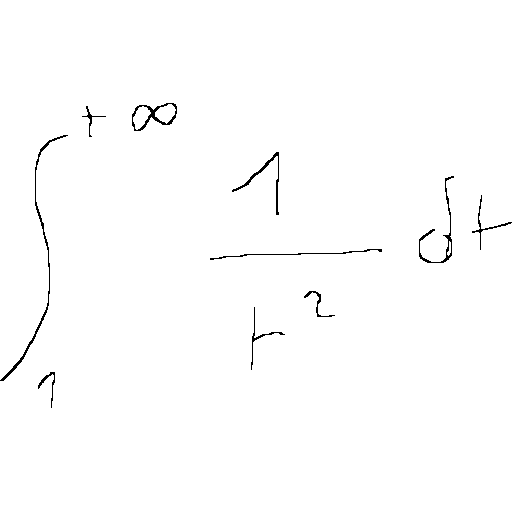 \int_{1}^{+\infty} \frac{1}{t^2} dt